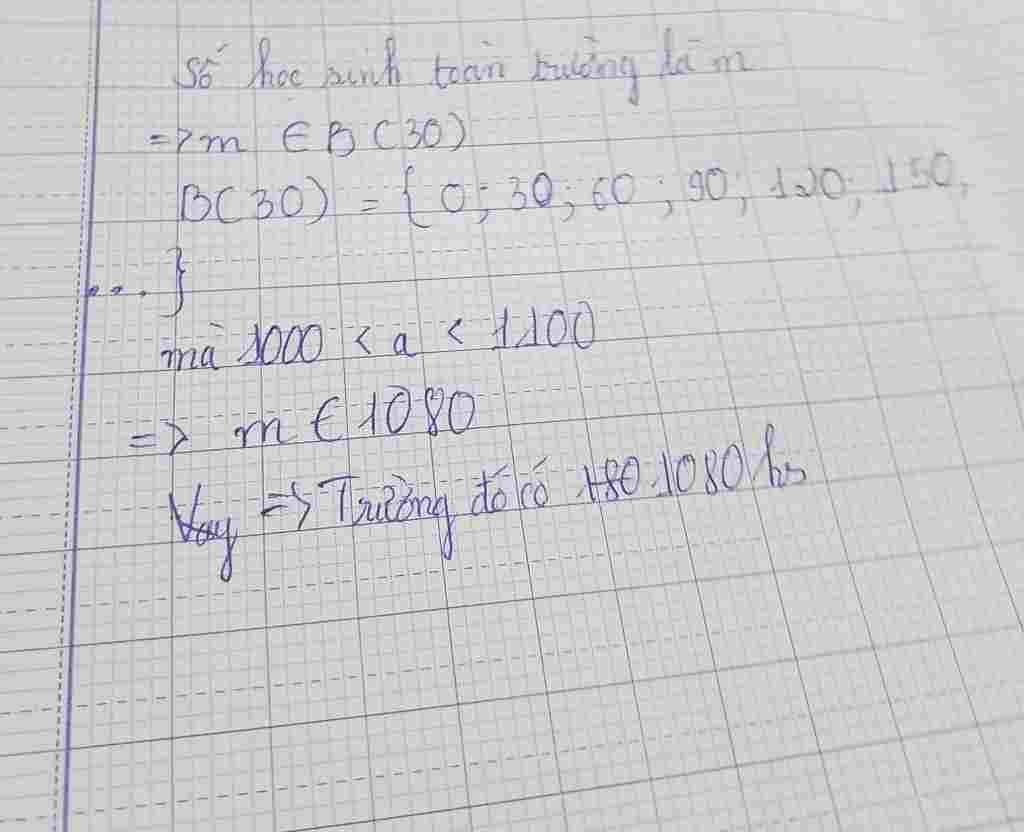 Số học sinh toàn trường là m
=> m ∈ B (30)
B(30) = { 0; 30; 60; 90; 120; 150;
... }
mà 1000 < a < 1100
=> m ∈ 1080
Vay => Trường đó có 180 1080 hs